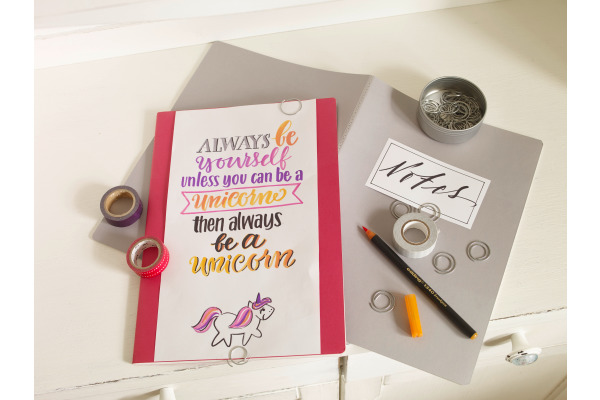 ALWAYS be
yourself
unless you can be a
unicorn
then always
be a
unicorn
Notes